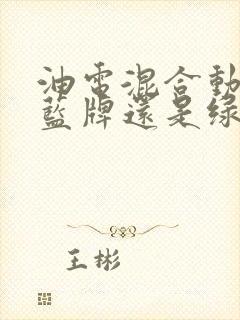 油電混合動
藍牌還是綠
王彬